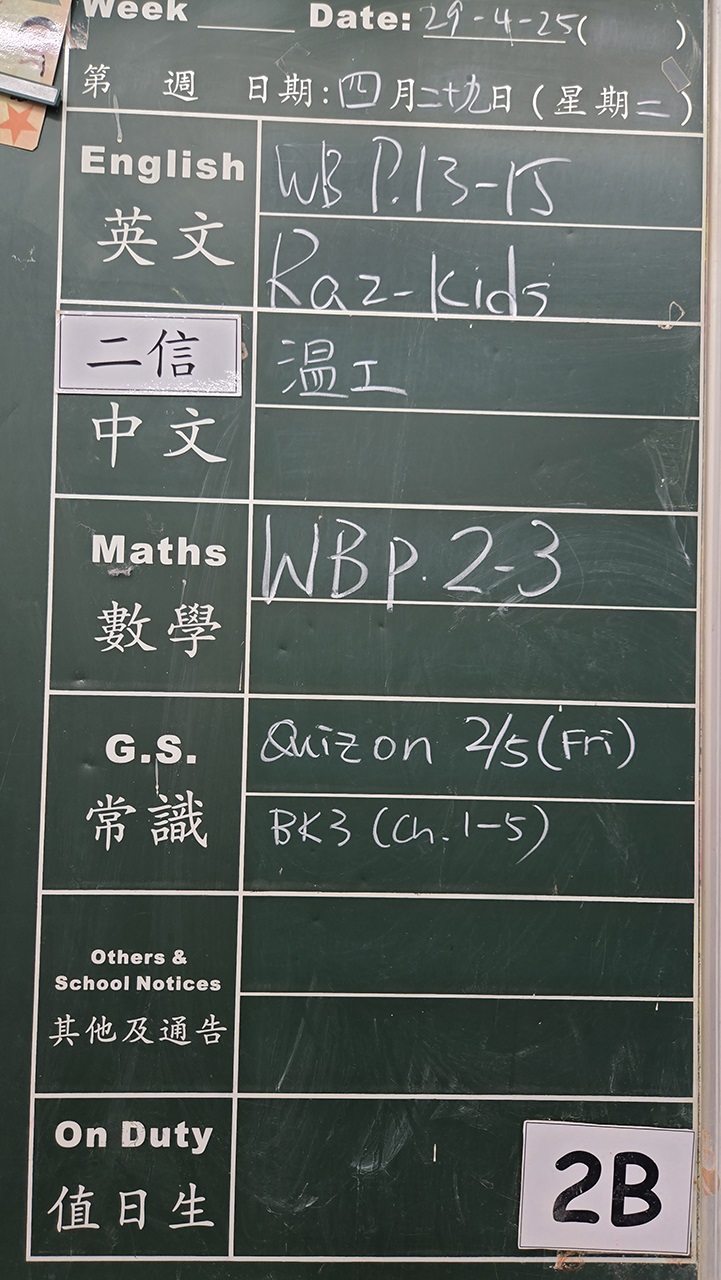 Week ____ Date: 29-4-25( )
第 週 日期:四月二十九日(星期二)
English
英文
WB P.13-15
Raz-kids
二信
中文
温工
Maths
數學
WB p.2-3
G.S.
常識
Quiz on 2/5(Fri)
BK3 (Ch.1-5)
Others &
School Notices
其他及通告
On Duty
值日生
2B